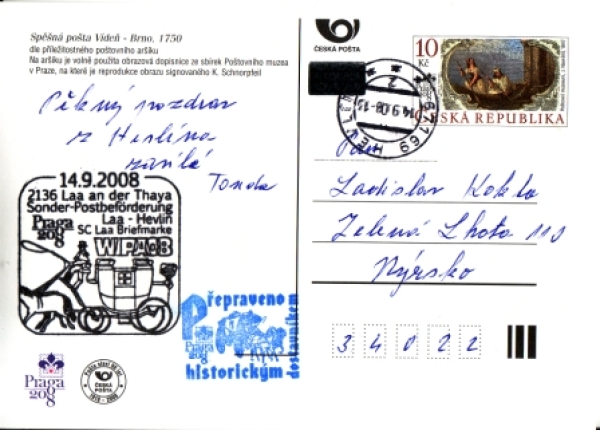 Spěšná pošta Vídeň - Brno, 1750
dle příležitostného poštovního aršíku
Na aršíku je volně použita obrazová dopisnice ze sbírek Poštovního muzea
v Praze, na které je reprodukce obrazu signovaného K. Schnorpfeil
Pěkný pozdrav
z Hevlína
zasílá
Tonda
14.9.2008
2136 Laa an der Thaya
Sonder-Postbeförderung
Laa - Hevlín
SC Laa Briefmarke
Praga
2008
WIPA08
Přepraveno
historickým
dostavníkem
Praga
2008
Praga
2008
ČESKÁ
POŠTA
1918 - 2008
ČESKÁ POŠTA
10
Kč
ČESKÁ REPUBLIKA
671 69
HEVLÍN
14.9.08-13
2
Pan
Ladislav Kokta
Zelená Lhota 110
Nýrsko
34022